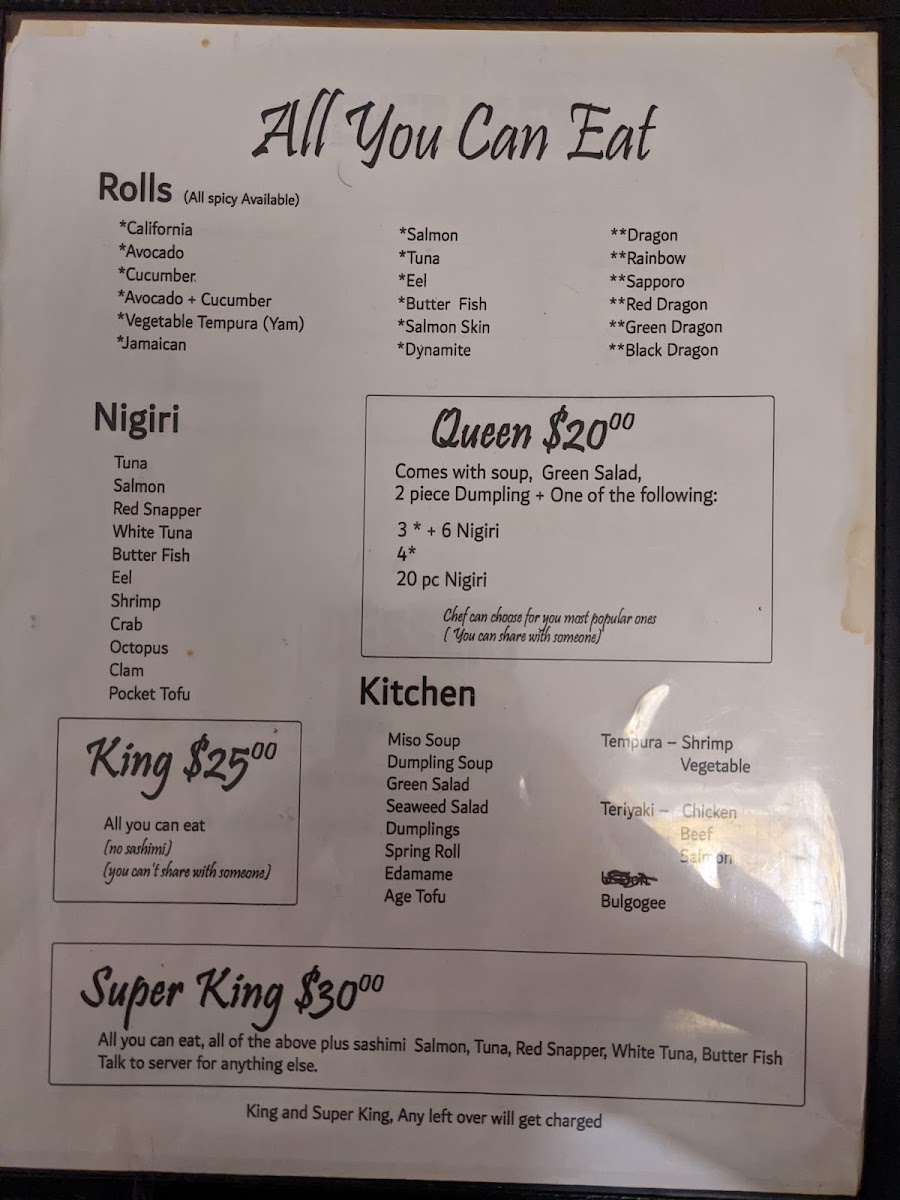 All You Can Eat
Rolls (All spicy Available)
*California
*Avocado
*Cucumber
*Avocado + Cucumber
*Vegetable Tempura (Yam)
*Jamaican
*Salmon
*Tuna
*Eel
*Butter Fish
*Salmon Skin
*Dynamite
**Dragon
**Rainbow
**Sapporo
**Red Dragon
**Green Dragon
**Black Dragon
Nigiri
Tuna
Salmon
Red Snapper
White Tuna
Butter Fish
Eel
Shrimp
Crab
Octopus
Clam
Pocket Tofu
Queen $20⁰⁰
Comes with soup, Green Salad,
2 piece Dumpling + One of the following:
3 * + 6 Nigiri
4*
20 pc Nigiri
Chef can choose for you most popular ones
( You can share with someone)
King $25⁰⁰
All you can eat
(no sashimi)
(you can't share with someone)
Kitchen
Miso Soup
Dumpling Soup
Green Salad
Seaweed Salad
Dumplings
Spring Roll
Edamame
Age Tofu
Tempura – Shrimp
Vegetable
Teriyaki – Chicken
Beef
Salmon
Bulgogee
Super King $30⁰⁰
All you can eat, all of the above plus sashimi Salmon, Tuna, Red Snapper, White Tuna, Butter Fish
Talk to server for anything else.
King and Super King, Any left over will get charged